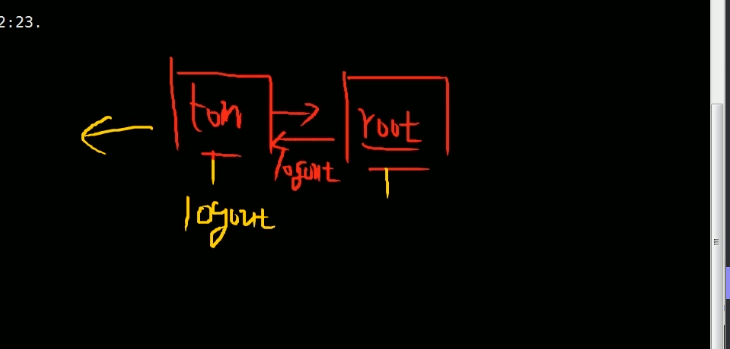 2:23.
tom root
logout
logout